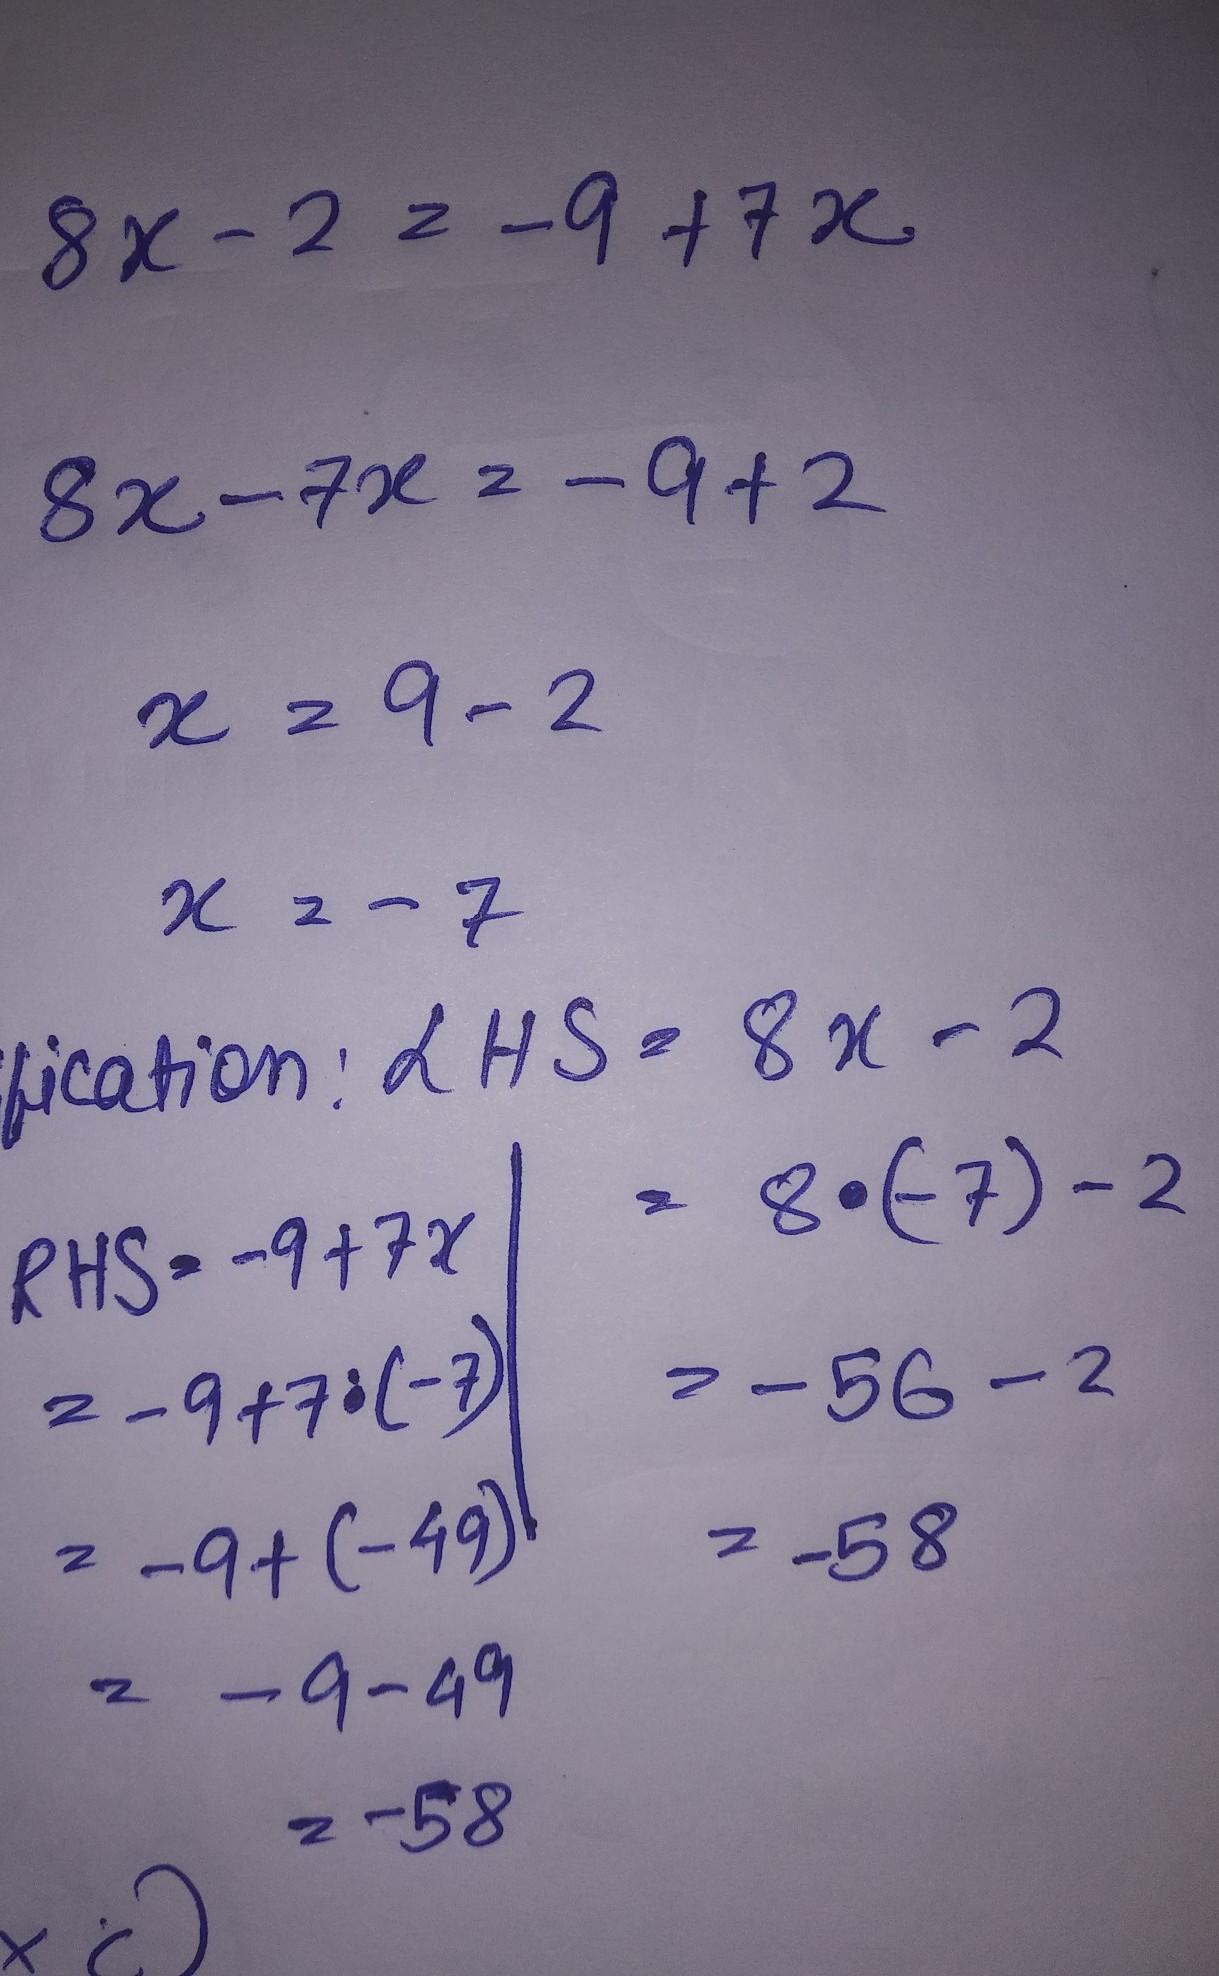 8x - 2 = -9 + 7x
8x - 7x = -9 + 2
x = 9 - 2
x = -7
fication: LHS = 8x - 2
= 8•(-7) - 2
RHS = -9 + 7x
= -9 + 7•(-7)
= -56 - 2
= -9 + (-49)
= -58
= -9 - 49
= -58
x i)